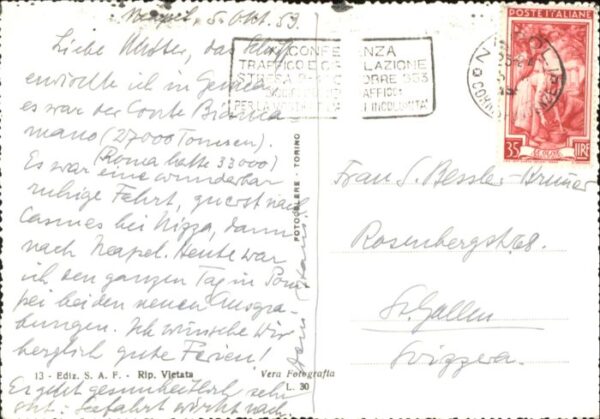 Neapel, 5. Okt. 53.
Liebe Mutter, das Schiff
erreichte ich in Genua
es war der Conte Bianca
mano (27000 Tonnen).
(Roma hatte 33000)
Es war eine wunderbar
ruhige Fahrt, zuerst nach
Cannes bei Nizza, dann
nach Neapel. Heute war
ich den ganzen Tag in Pom
pei bei den neuen Ausgra-
bungen. Ich wünsche Dir
herzlich gute Ferien!
Es geht gesundheitlich sehr
gut: Seefahrt wirkt nach
Dein
13 - Ediz. S. A. F. - Rip. Vietata
Vera Fotografia
L. 30
FOTOCELERE - TORINO
CONFERENZA
TRAFFICO E CIRCOLAZIONE
STRESA OTTOBRE 1953
TRAFFICO
INCOLUMITÀ
NAPOLI
POSTE ITALIANE
35 LIRE
Frau S. Bessler-Bruner
Rosenbergstr. 68.
St. Gallen
Svizzera.